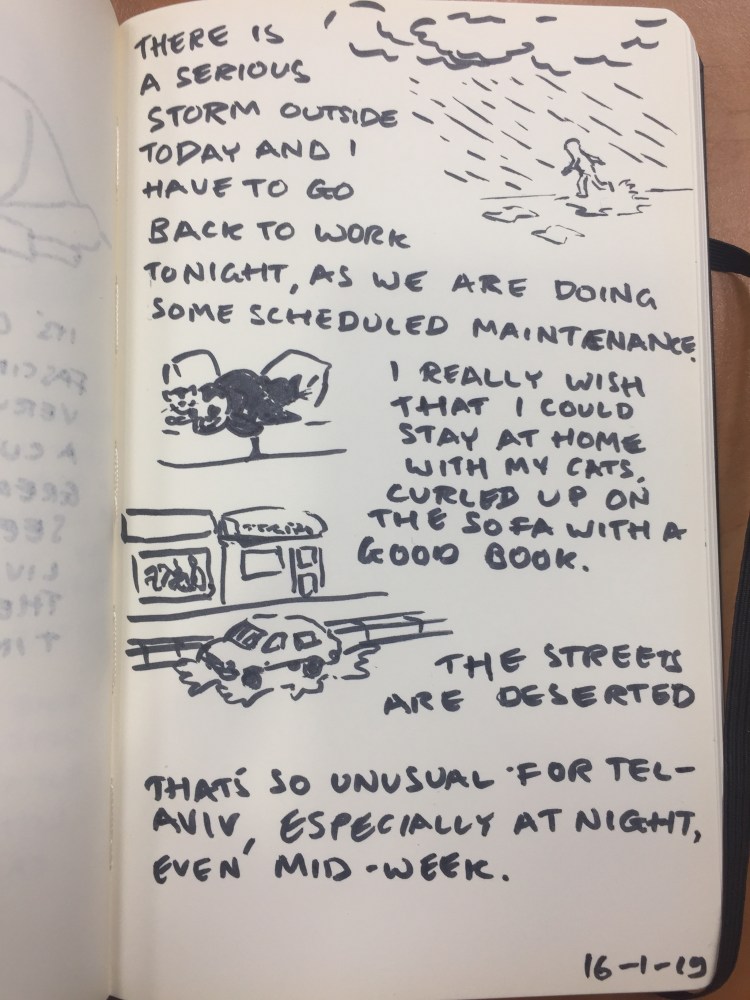 THERE IS
A SERIOUS
STORM OUTSIDE
TODAY AND I
HAVE TO GO
BACK TO WORK
TONIGHT, AS WE ARE DOING
SOME SCHEDULED MAINTENANCE.
I REALLY WISH
THAT I COULD
STAY AT HOME
WITH MY CATS,
CURLED UP ON
THE SOFA WITH A
GOOD BOOK.
THE STREETS
ARE DESERTED
THAT'S SO UNUSUAL FOR TEL-
AVIV, ESPECIALLY AT NIGHT,
EVEN MID-WEEK.
16-1-19